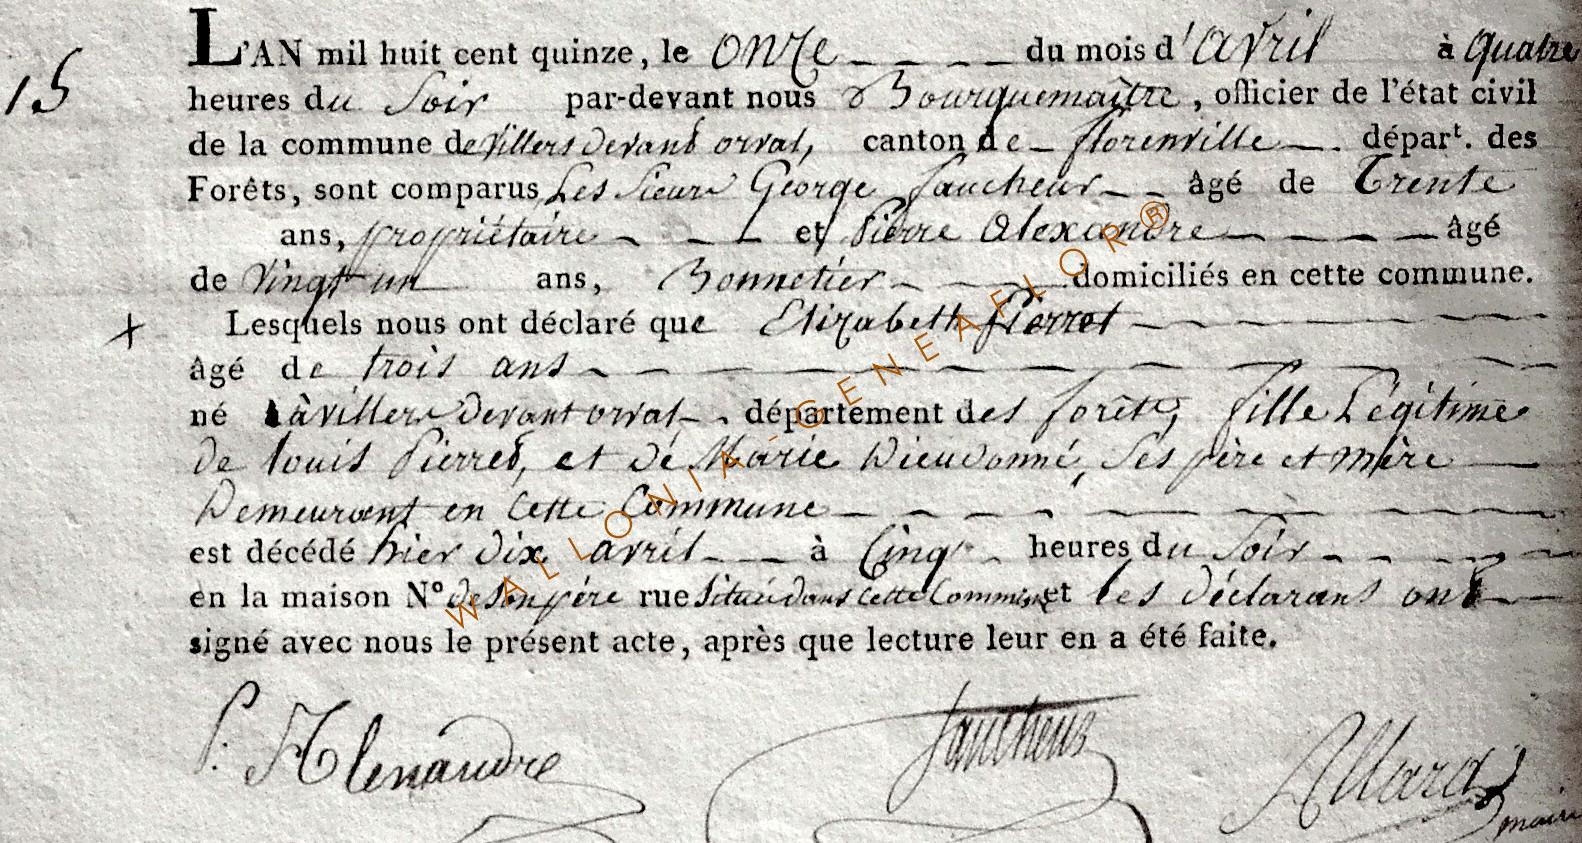 15
L'AN mil huit cent quinze, le onze du mois d'avril à quatre
heures du Soir par-devant nous Bourguemaître, officier de l'état civil
de la commune de Villers devant orval, canton de florenville dépar<sup>t</sup>. des
Forêts, sont comparus Les Sieurs George faucheur âgé de Trente
ans, propriétaire et Pierre Alexandre âgé
de Vingt un ans, Bonnetier domiciliés en cette commune.
+ Lesquels nous ont déclaré que Elizabeth Pierret
âgé de trois ans
né à villers devant orval département des forêts, fille Légitime
de louis Pierret, et de Marie Dieudonné, Ses père et mère
Demeurant en cette Commune
est décédé hier dix avril à Cinq heures du Soir
en la maison N° de Son père rue Située dans cette Commune et les déclarans ont
signé avec nous le présent acte, après que lecture leur en a été faite.
P: Alexandre faucheur Allard
maire
WALLONIA-GENEAFLOR®